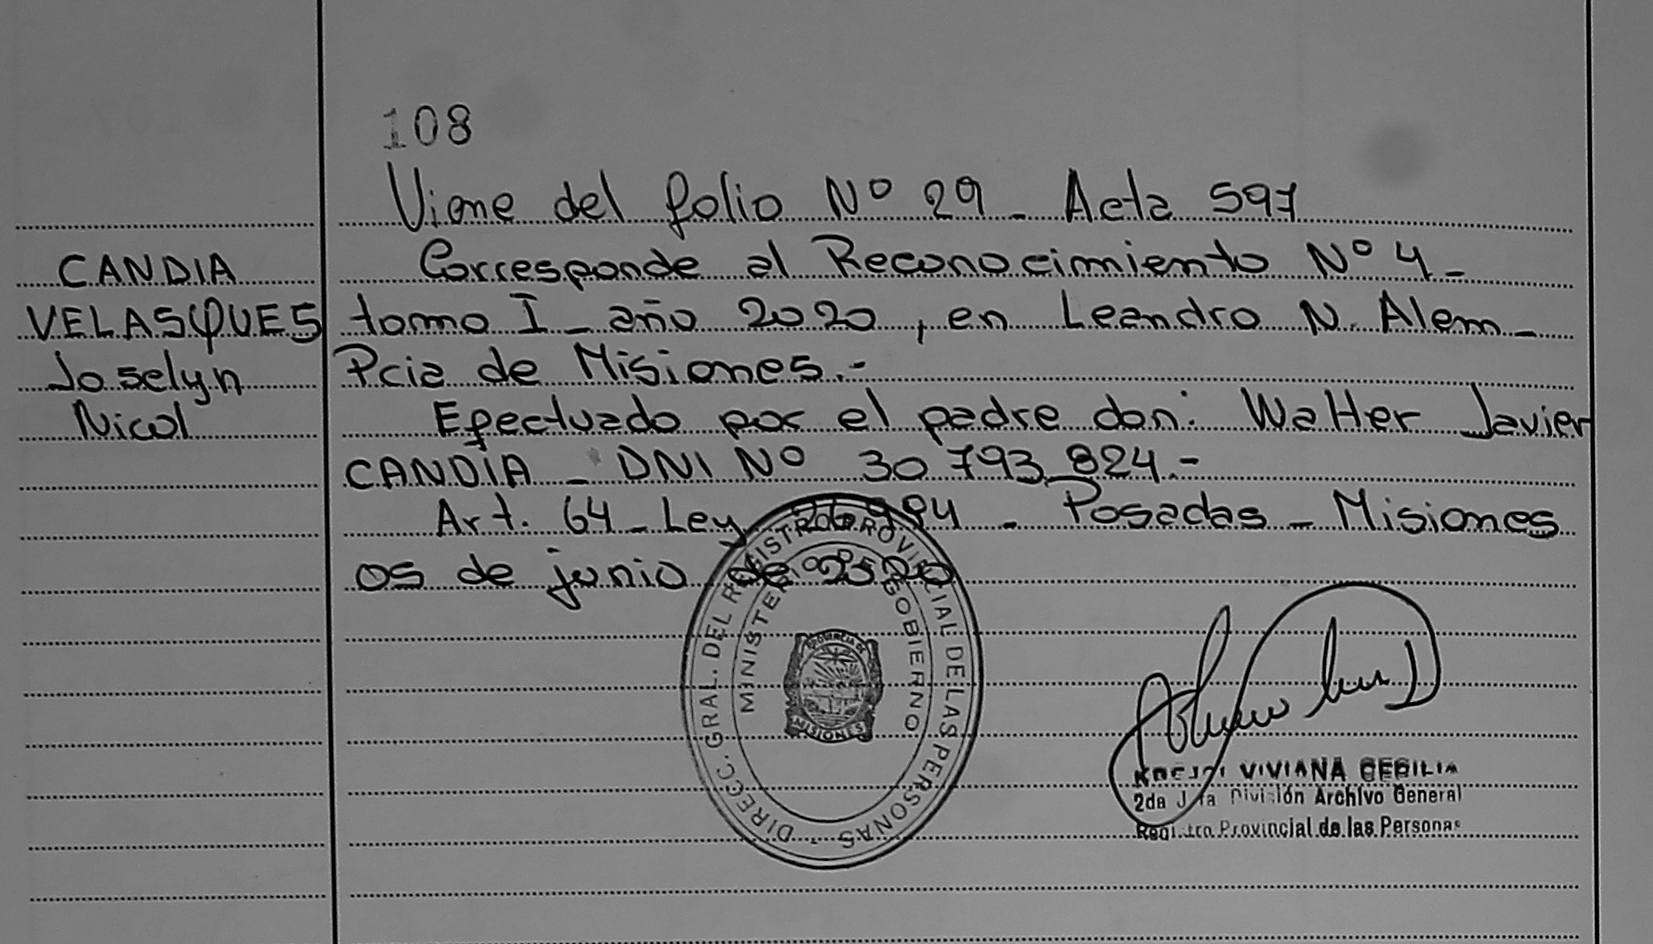 108
Viene del folio Nº 29 - Acta 597
CANDIA
VELASQUES
Joselyn
Nicol
Corresponde al Reconocimiento Nº 4 -
tomo I - año 2020, en Leandro N. Alem -
Pcia de Misiones.-
Efectuado por el padre don: Walter Javier
CANDIA - DNI Nº 30.793.824.-
Art. 64 - Ley 26.994 - Posadas - Misiones
05 de junio de 2020
DIRECC. GRAL. DEL REGISTRO PROVINCIAL DE LAS PERSONAS
MINISTERIO DE GOBIERNO
PROVINCIA DE
MISIONES
VIVIANA CECILIA
2da Jefa División Archivo General
Registro Provincial de las Personas